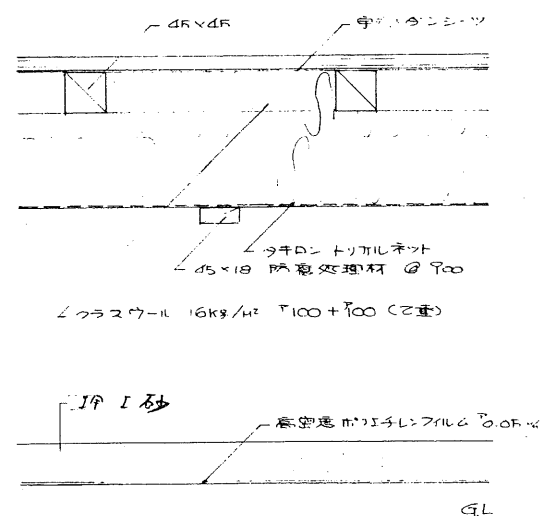 45×45
タキロン トリカルネット
45×18 防腐処理材 @900
グラスウール 16Kg/M² ㋐100+㋐100 (2重)
押エ砂
高密度ポリエチレンフィルム 0.05
GL